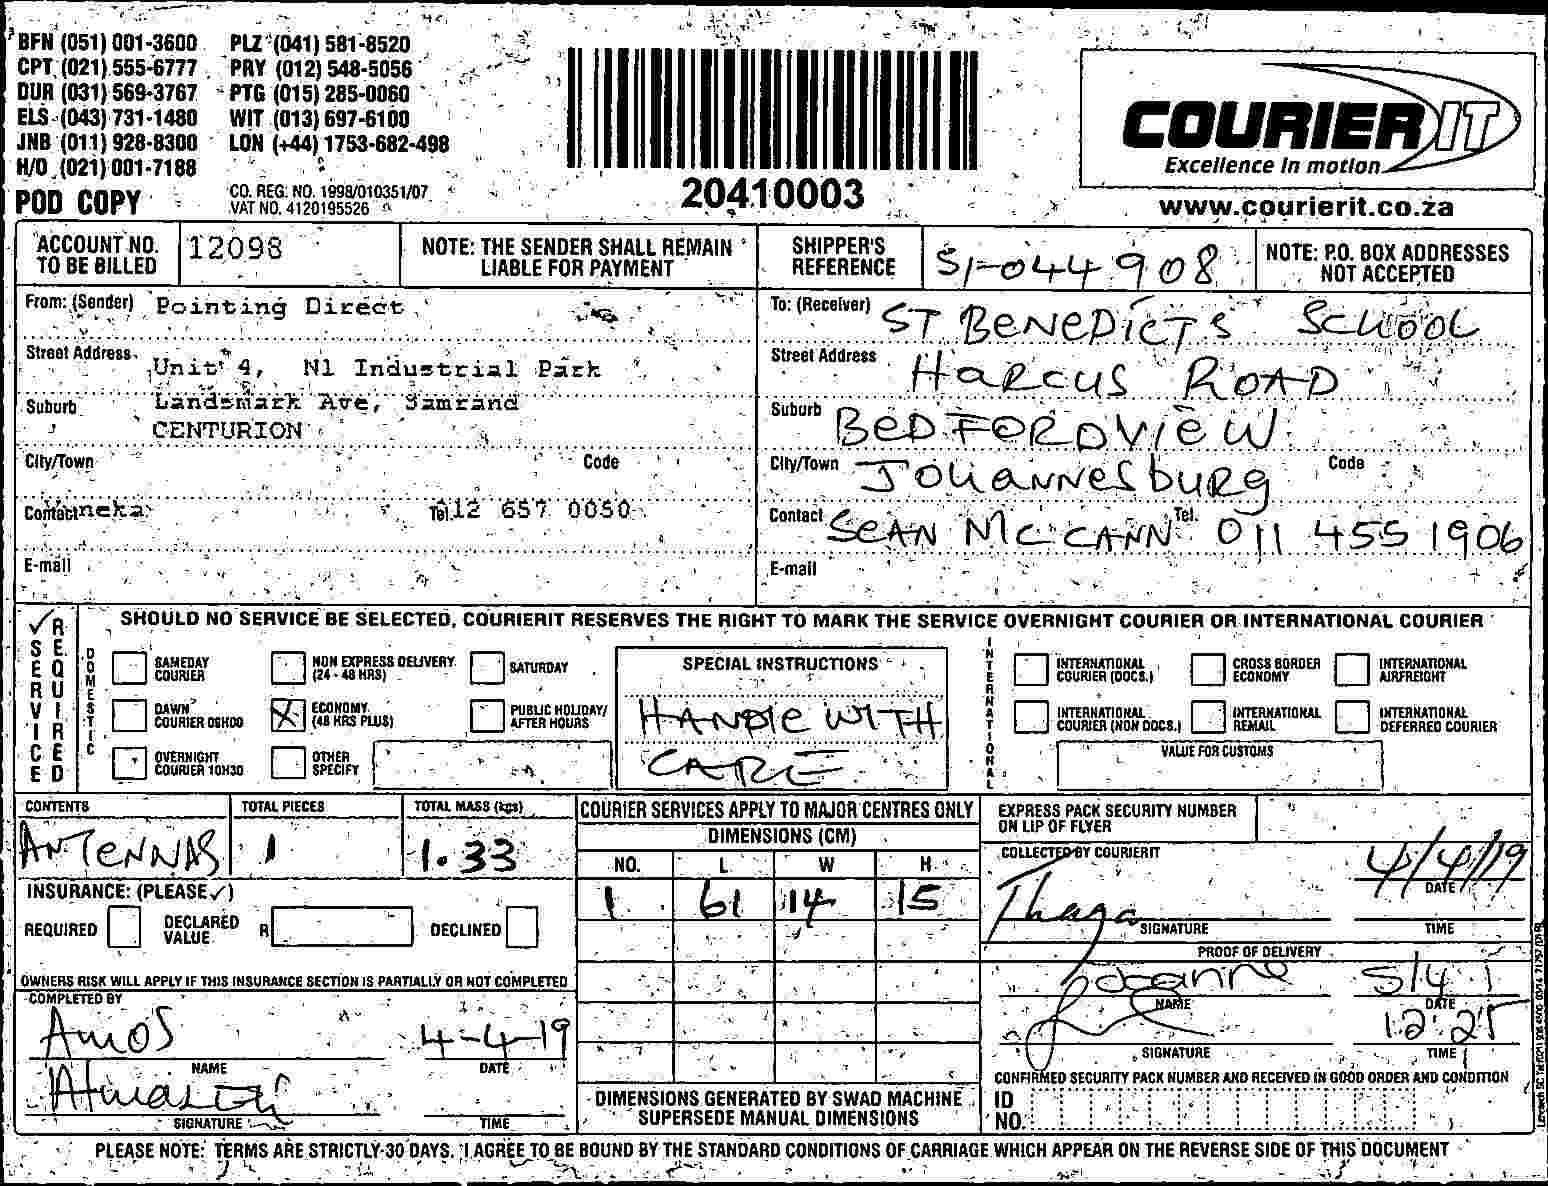 BFN (051) 001-3600 PLZ (041) 581-8520
CPT (021) 555-6777 PRY (012) 548-5056
DUR (031) 569-3767 PTG (015) 285-0060
ELS (043) 731-1480 WIT (013) 697-6100
JNB (011) 928-8300 LON (+44) 1753-682-498
H/O (021) 001-7188
POD COPY
CO. REG. NO. 1998/010351/07
VAT NO. 4120195526
20410003
COURIER IT
Excellence in motion
www.courierit.co.za
ACCOUNT NO. TO BE BILLED 12098
NOTE: THE SENDER SHALL REMAIN LIABLE FOR PAYMENT
SHIPPER'S REFERENCE SI-044908
NOTE: P.O. BOX ADDRESSES NOT ACCEPTED
From: (Sender) Pointing Direct
Street Address Unit 4, N1 Industrial Park
Suburb Landsmark Ave, Samrand
CENTURION
City/Town Code
Contact neka Tel 12 657 0050
E-mail
To: (Receiver) ST BENEDICTS SCHOOL
Street Address HARCUS ROAD
Suburb BEDFORDVIEW
City/Town JOHANNESBURG Code
Contact SEAN MCCANN Tel. 011 455 1906
E-mail
SERVICE REQUIRED
SHOULD NO SERVICE BE SELECTED, COURIERIT RESERVES THE RIGHT TO MARK THE SERVICE OVERNIGHT COURIER OR INTERNATIONAL COURIER
DOMESTIC
SAMEDAY COURIER
NON EXPRESS DELIVERY (24 - 48 HRS)
SATURDAY
DAWN COURIER 09H00
ECONOMY (48 HRS PLUS)
PUBLIC HOLIDAY/ AFTER HOURS
OVERNIGHT COURIER 10H30
OTHER SPECIFY
SPECIAL INSTRUCTIONS
HANDLE WITH
CARE
INTERNATIONAL
INTERNATIONAL COURIER (DOCS.)
CROSS BORDER ECONOMY
INTERNATIONAL AIRFREIGHT
INTERNATIONAL COURIER (NON DOCS.)
INTERNATIONAL REMAIL
INTERNATIONAL DEFERRED COURIER
VALUE FOR CUSTOMS
CONTENTS TOTAL PIECES TOTAL MASS (kgs)
ANTENNAS 1 1.33
INSURANCE: (PLEASE ✓)
REQUIRED DECLARED VALUE R DECLINED
OWNERS RISK WILL APPLY IF THIS INSURANCE SECTION IS PARTIALLY OR NOT COMPLETED
COMPLETED BY
AMOS 4-4-19
NAME DATE
SIGNATURE TIME
COURIER SERVICES APPLY TO MAJOR CENTRES ONLY
DIMENSIONS (CM)
NO. L W H
1 61 14 15
DIMENSIONS GENERATED BY SWAD MACHINE SUPERSEDE MANUAL DIMENSIONS
EXPRESS PACK SECURITY NUMBER ON LIP OF FLYER
COLLECTED BY COURIERIT
Thaga 4/4/19
DATE
SIGNATURE TIME
PROOF OF DELIVERY
5/4
NAME DATE
12:25
SIGNATURE TIME
CONFIRMED SECURITY PACK NUMBER AND RECEIVED IN GOOD ORDER AND CONDITION
ID NO.
PLEASE NOTE: TERMS ARE STRICTLY 30 DAYS. I AGREE TO BE BOUND BY THE STANDARD CONDITIONS OF CARRIAGE WHICH APPEAR ON THE REVERSE SIDE OF THIS DOCUMENT